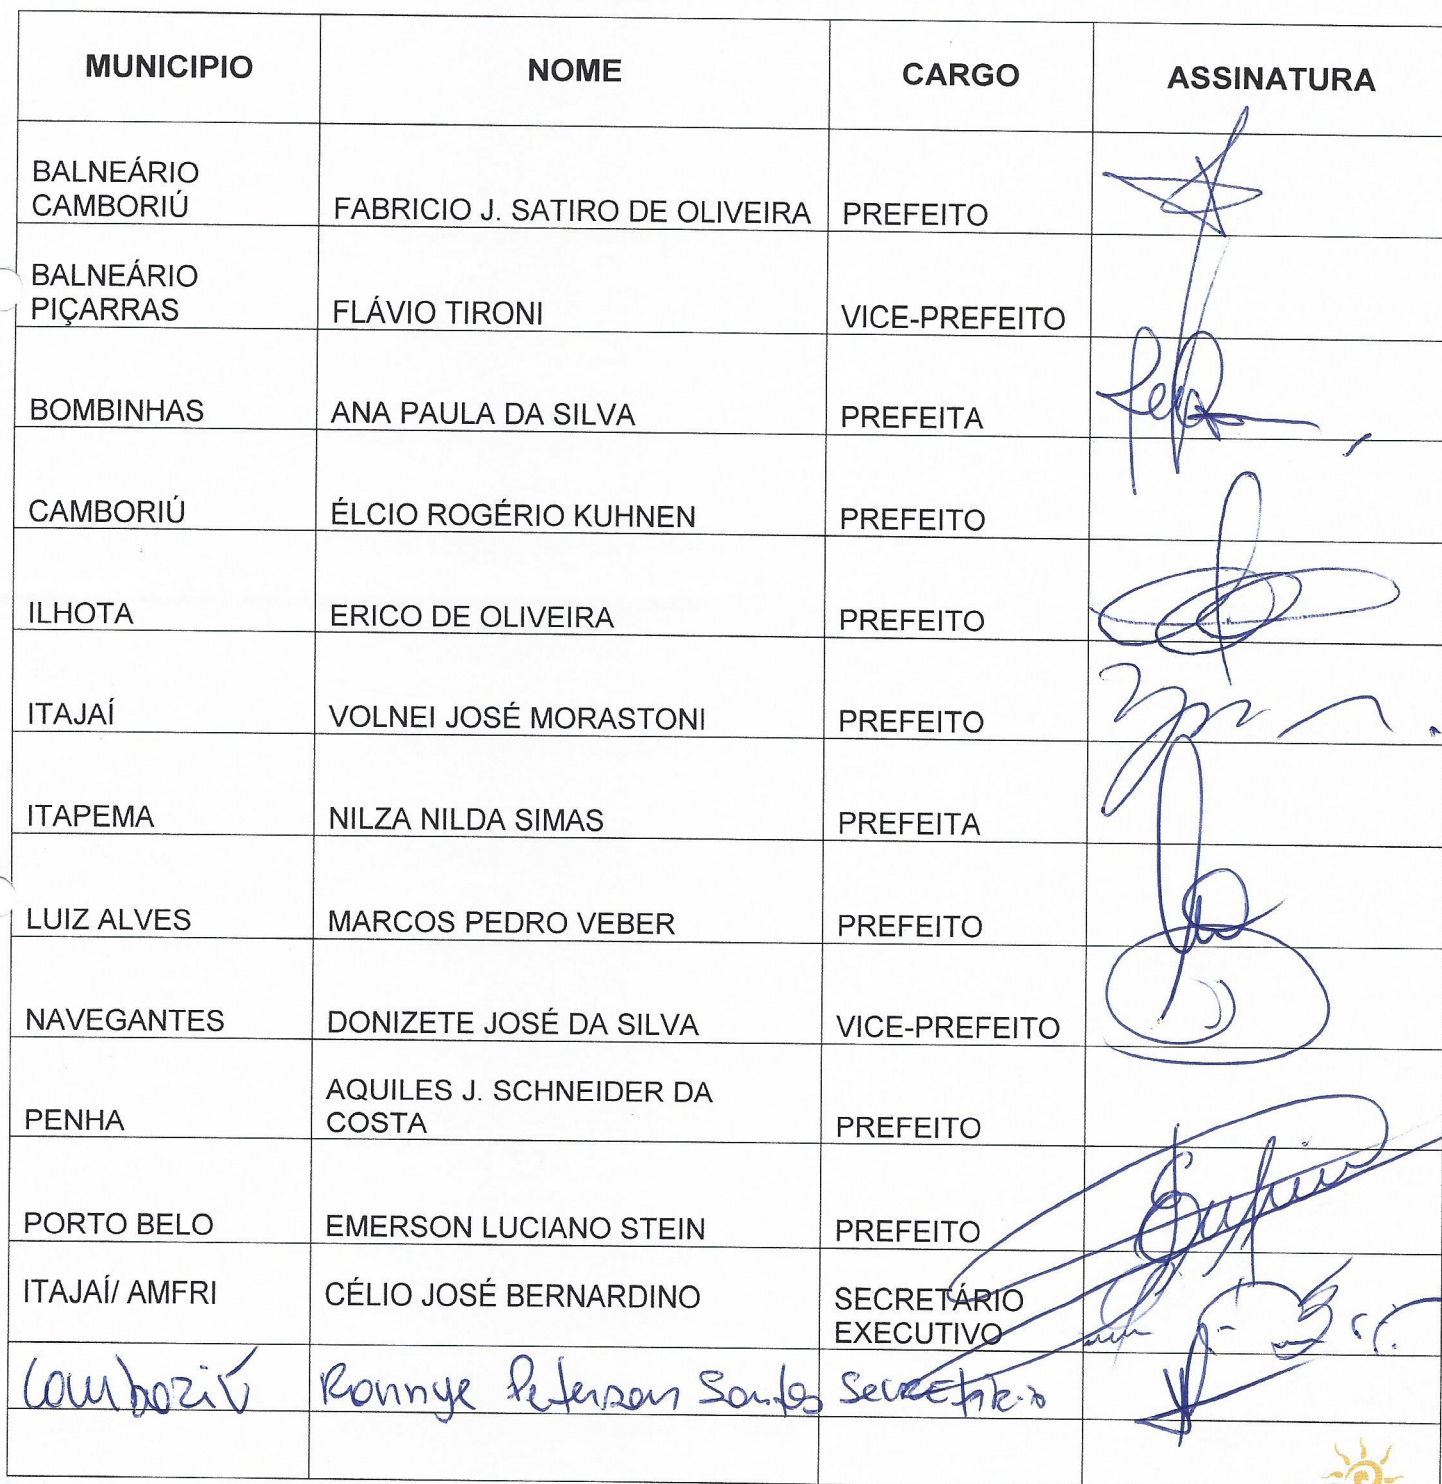 MUNICIPIO NOME CARGO ASSINATURA
BALNEÁRIO
CAMBORIÚ FABRICIO J. SATIRO DE OLIVEIRA PREFEITO
BALNEÁRIO
PIÇARRAS FLÁVIO TIRONI VICE-PREFEITO
BOMBINHAS ANA PAULA DA SILVA PREFEITA
CAMBORIÚ ÉLCIO ROGÉRIO KUHNEN PREFEITO
ILHOTA ERICO DE OLIVEIRA PREFEITO
ITAJAÍ VOLNEI JOSÉ MORASTONI PREFEITO
ITAPEMA NILZA NILDA SIMAS PREFEITA
LUIZ ALVES MARCOS PEDRO VEBER PREFEITO
NAVEGANTES DONIZETE JOSÉ DA SILVA VICE-PREFEITO
AQUILES J. SCHNEIDER DA
PENHA COSTA PREFEITO
PORTO BELO EMERSON LUCIANO STEIN PREFEITO
ITAJAÍ/ AMFRI CÉLIO JOSÉ BERNARDINO SECRETÁRIO
EXECUTIVO
Camboriú Ronnye Peterson Santos Secretário